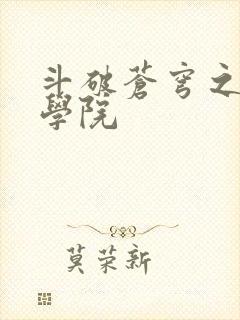 斗破蒼穹之
學院
莫荣新